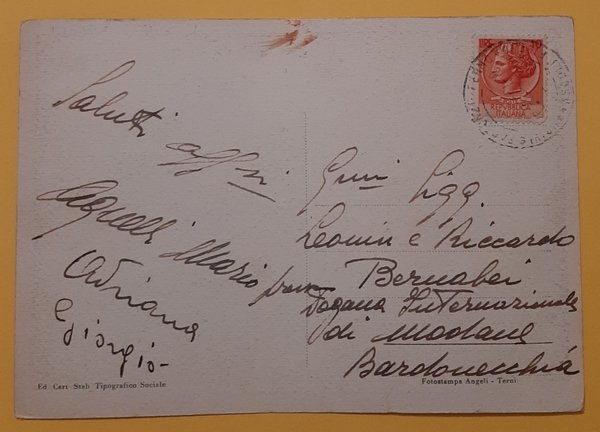 Saluti
aff.ni
Mario
Adriana
Giorgio
Gmi Sigg.
Leonin e Riccardo
Bernabei
Dogana Internazionale
di Modane
Bardonecchia
REPUBBLICA
ITALIANA
Ed Cart Stab Tipografico Sociale
Fotostampa Angeli - Terni